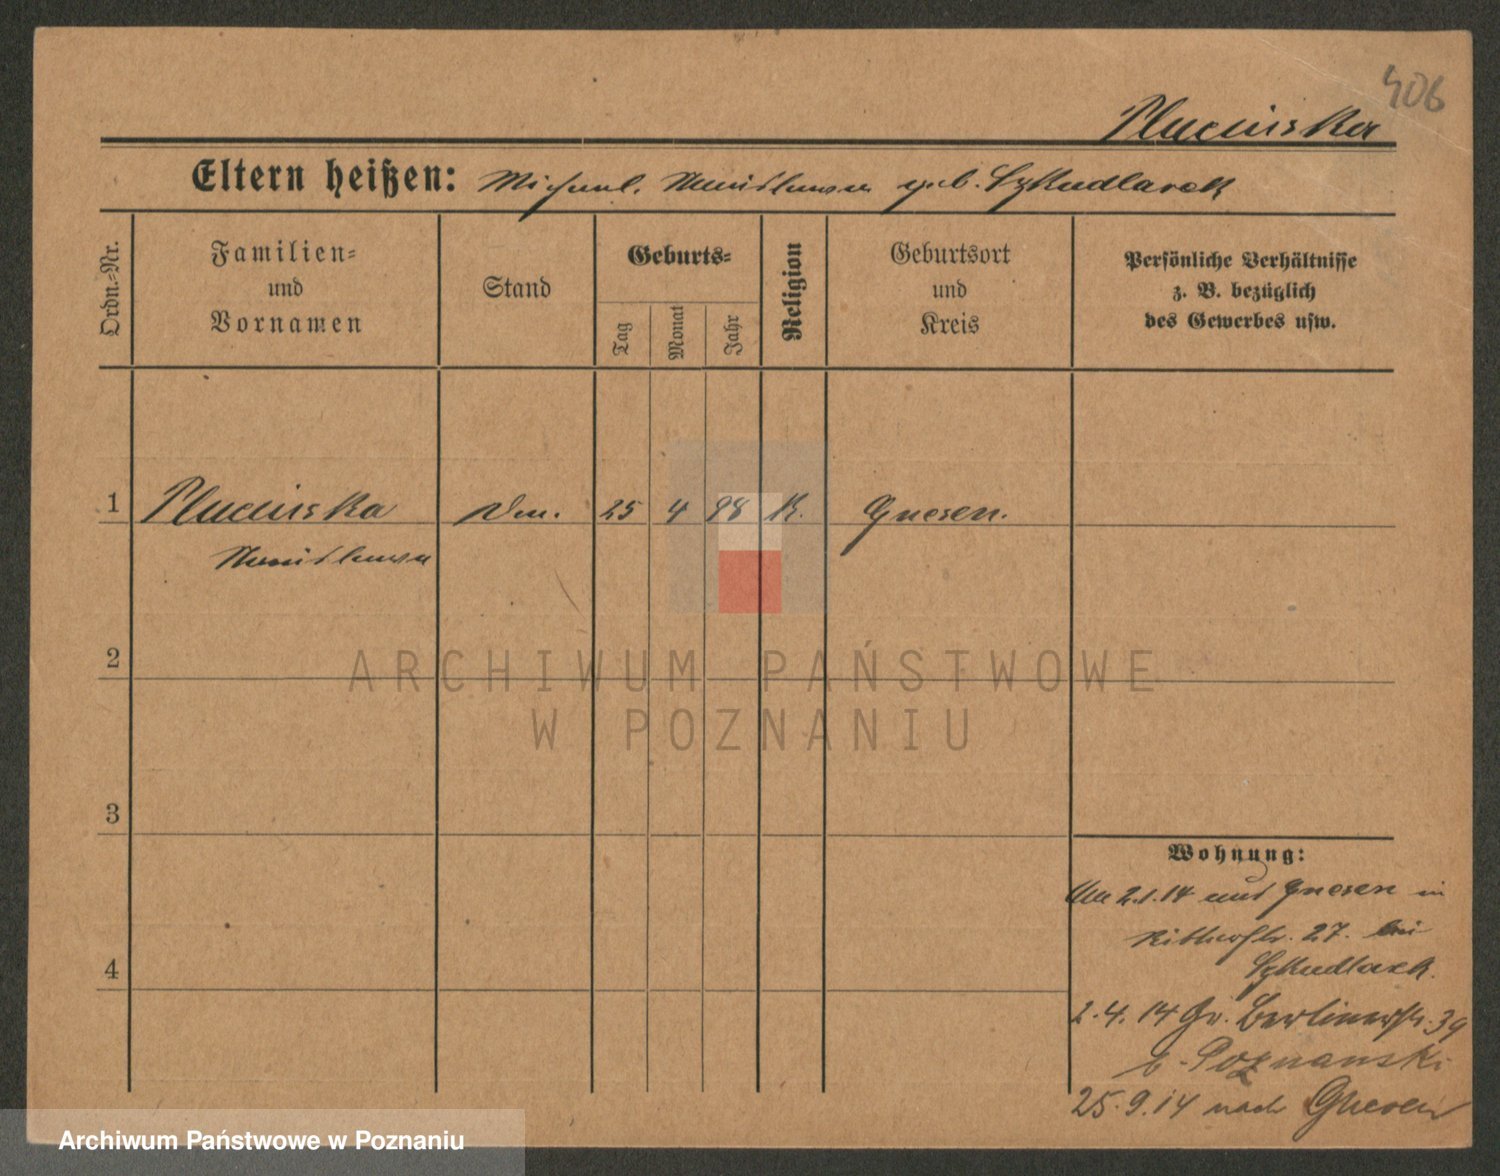 406
Plucinska
Eltern heißen: Michael. Stanislawa geb. Szkudlarek
Ordn.=Nr.
Familien=
und
Vornamen
Stand
Geburts=
Tag
Monat
Jahr
Religion
Geburtsort
und
Kreis
Persönliche Verhältnisse
z. B. bezüglich
des Gewerbes usw.
1 Plucinska 25 4 98 K. Gnesen.
Stanislawa
2
3
4
Wohnung:
2.1.14 aus Gnesen in
Ritterstr. 27. bei
Szkudlarek.
2.4.14 Berlinerstr. 39
b. Poznanski
25.9.14 nach Gnesen
ARCHIWUM PAŃSTWOWE
W POZNANIU
Archiwum Państwowe w Poznaniu